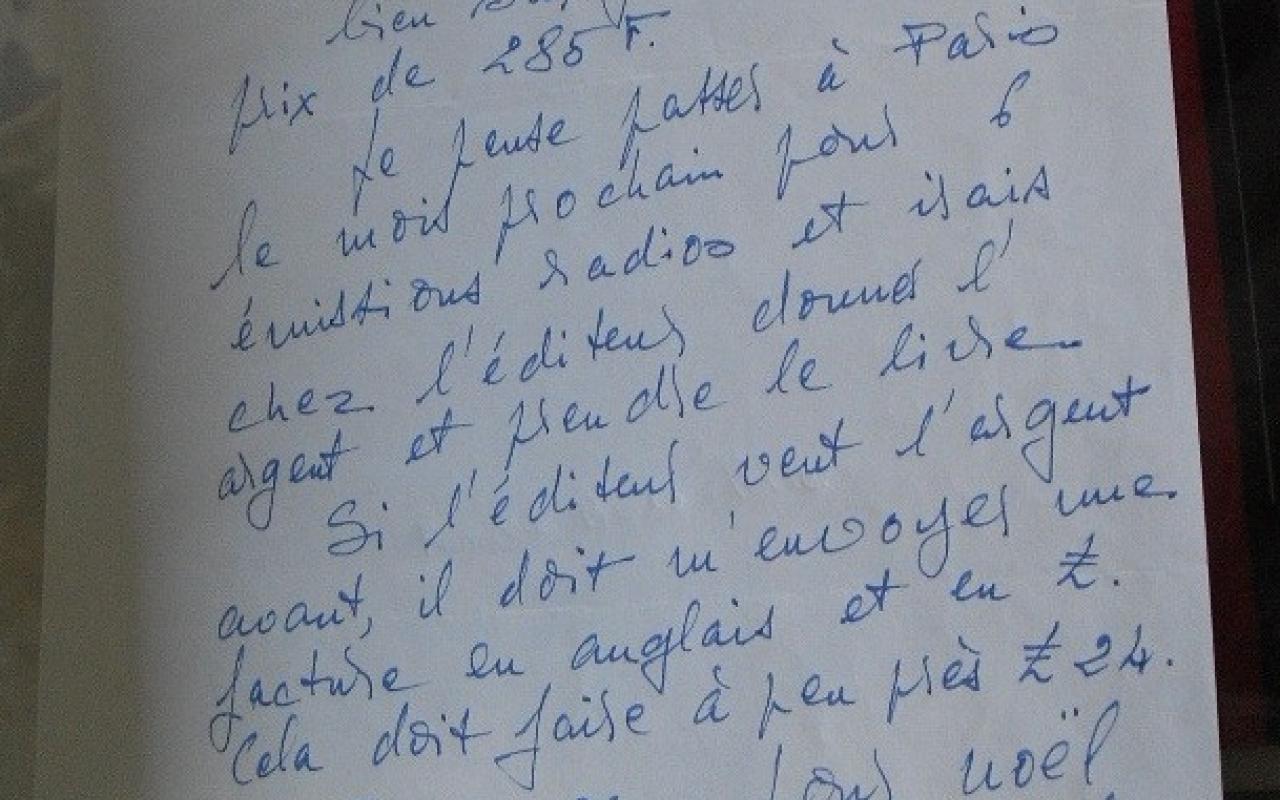 bien
prix de 285 F.
Je pense passer à Paris
le mois prochain pour 6
émissions radios et irais
chez l'éditeur donner l'
argent et prendre le livre
Si l'éditeur veut l'argent
avant, il doit m'envoyer une
facture en anglais et en £.
Cela doit faire à peu près £ 24.
pour noël